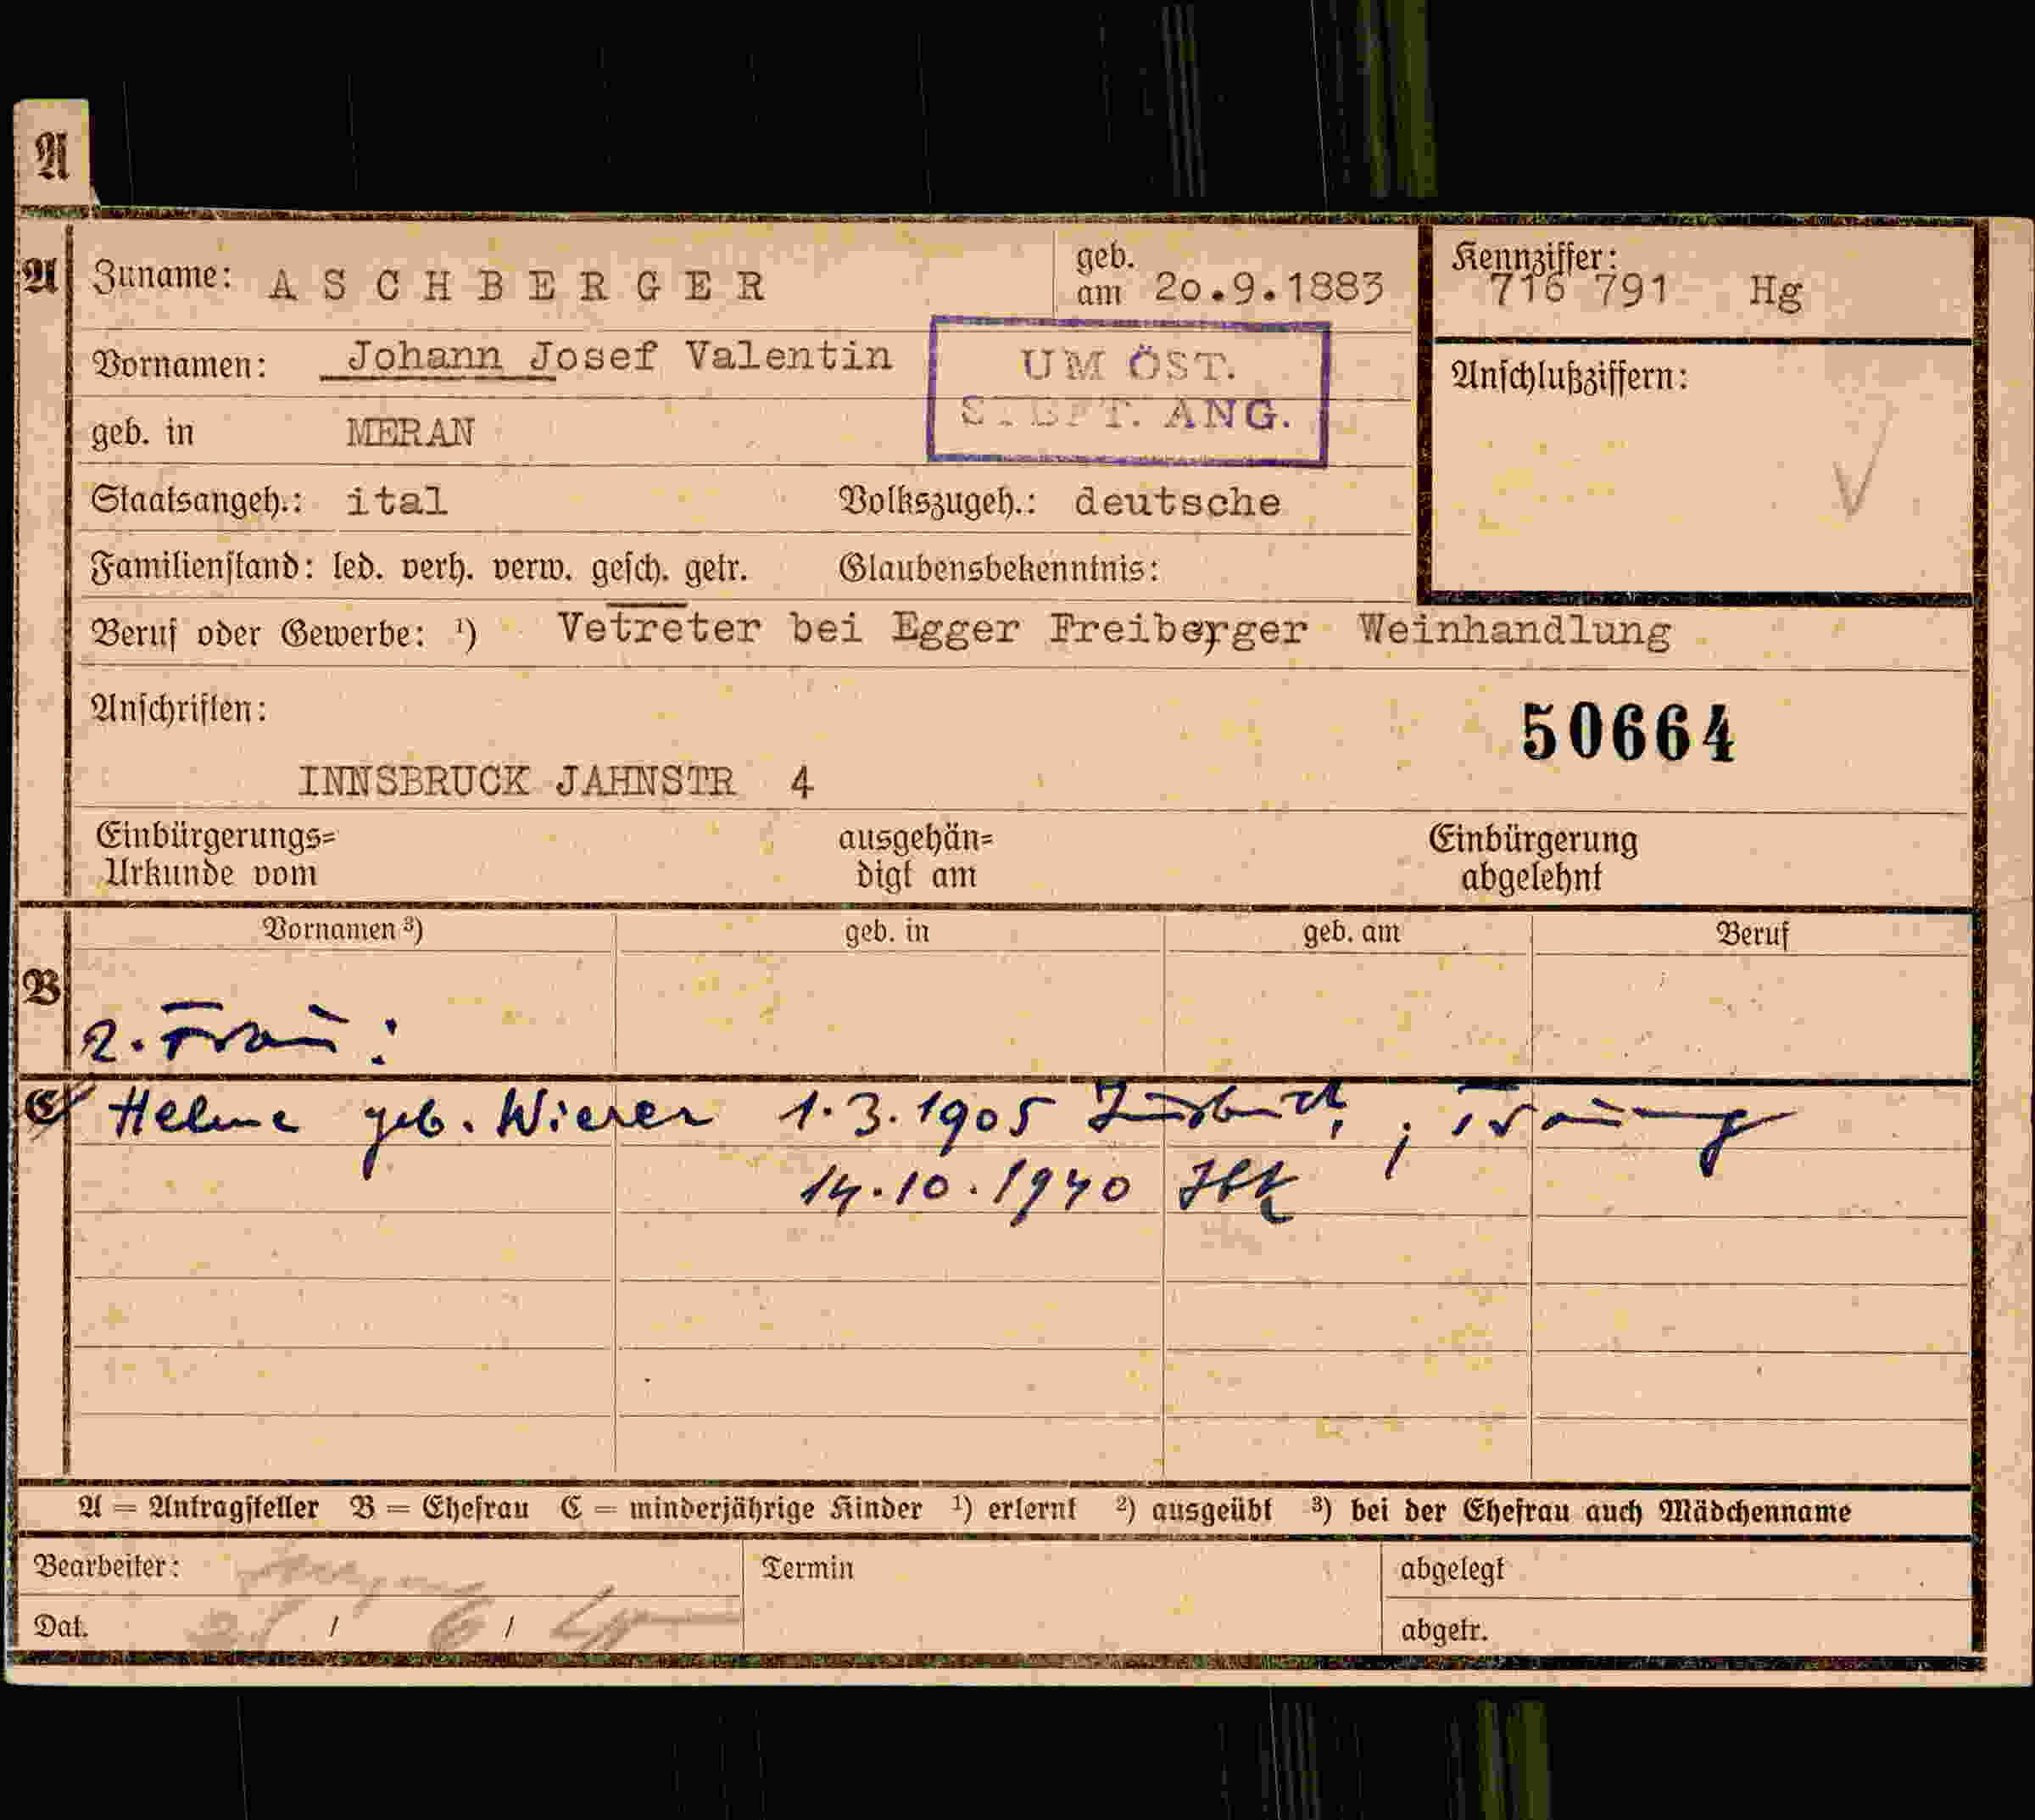 A
A
Zuname: ASCHBERGER geb. am 20.9.1883
Kennziffer: 716 791 Hg
Vornamen: Johann Josef Valentin
UM ÖST.
ANG.
Anschlußziffern:
geb. in MERAN
Staatsangeh.: ital Volkszugeh.: deutsche
Familienstand: led. verh. verw. gesch. getr. Glaubensbekenntnis:
Beruf oder Gewerbe: ¹) Vetreter bei Egger Freiberger Weinhandlung
Anschriften:
50664
INNSBRUCK JAHNSTR 4
Einbürgerungs=
Urkunde vom
ausgehän=
digt am
Einbürgerung
abgelehnt
Vornamen ³) geb. in geb. am Beruf
B
2. Frau:
C Helene geb. Wieser 1.3.1905 Innsbruck, ; Trauung
14.10.1940 Ibk
A = Antragsteller B = Ehefrau C = minderjährige Kinder ¹) erlernt ²) ausgeübt ³) bei der Ehefrau auch Mädchenname
Bearbeiter: Termin abgelegt
Dat. / / abgetr.